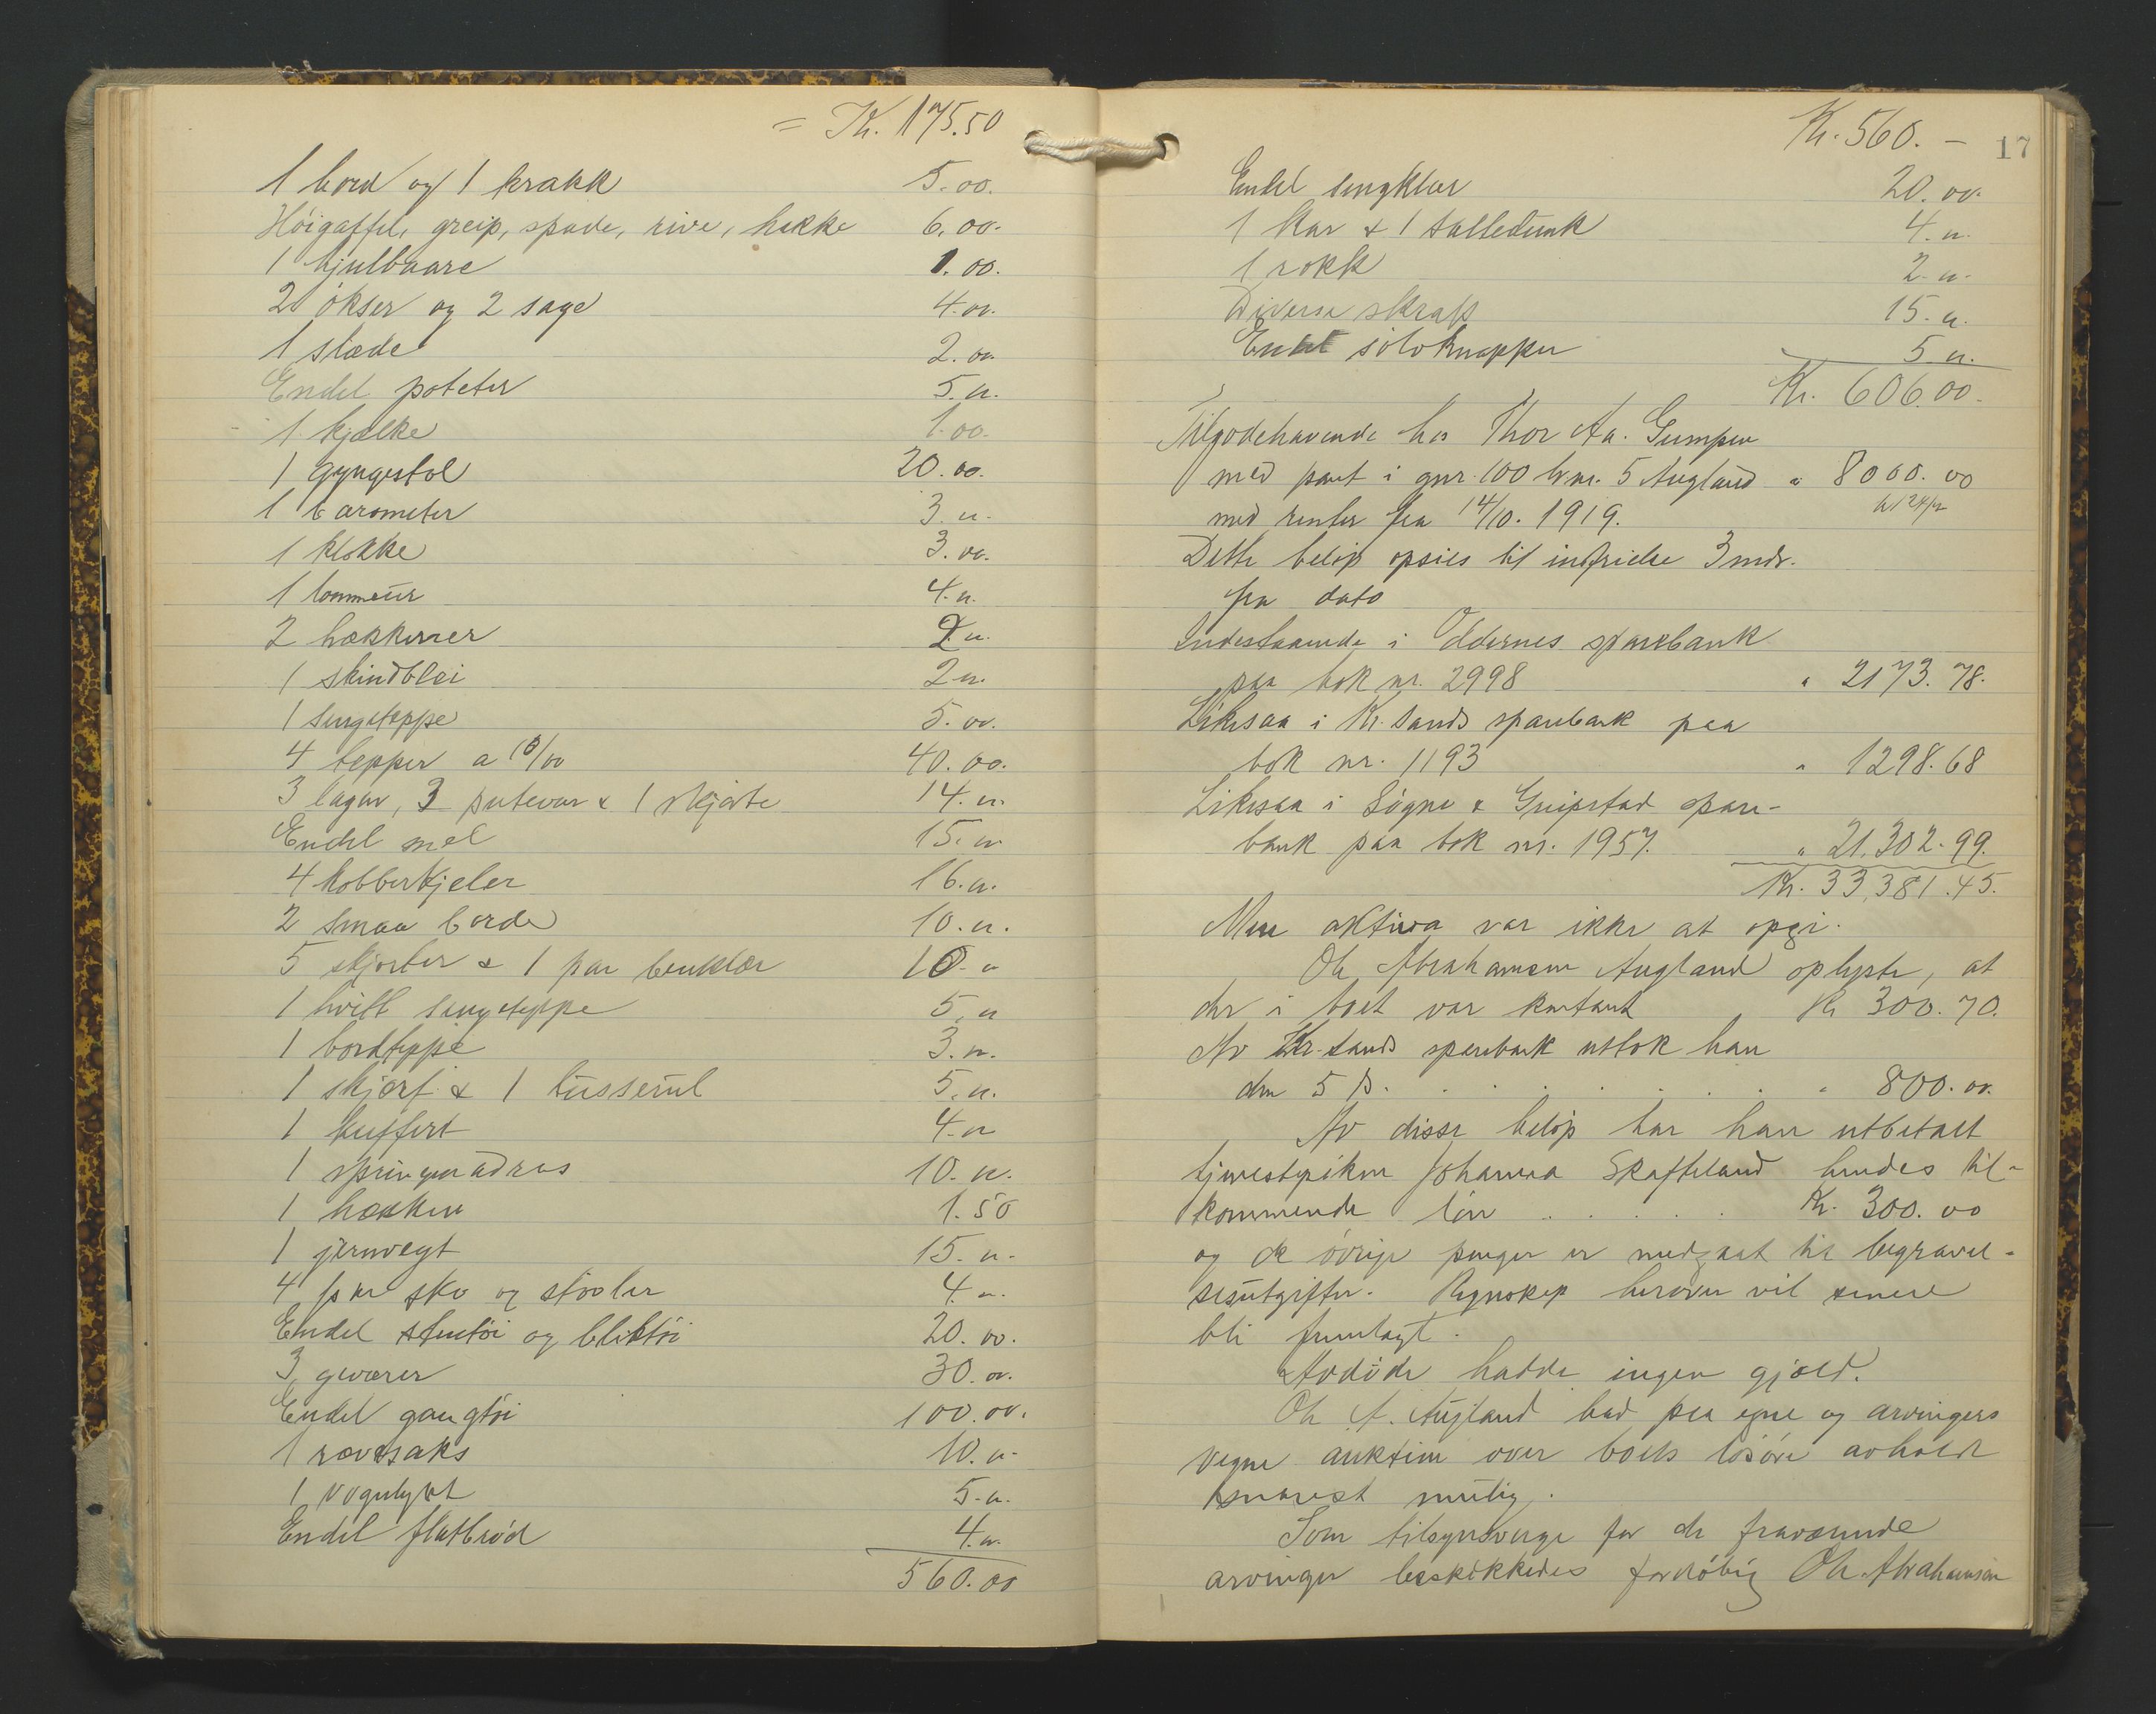 = Kr. 175.50
1 bord og 1 krakk 5.00.
Höigaffel, greip, spade, rive, hakke 6.00.
1 hjulbaare 1.00.
2 økser og 2 sage 4.00.
1 slæde 2.00
Endel poteter 5.„.
1 kjælke 1.00.
1 gyngestol 20.00.
1 barometer 3.„.
1 klokke 3.00.
1 lommeur 4.„.
2 hækkener 2.„.
1 skindblei 2„.
1 sengeteppe 5.00.
4 tepper a 10/00 40.00.
3 lagen, 3 putevar & 1 skjorte 14.„.
Endel mel 15.„
4 kobberkjeler 16.„.
2 smaa borde 10.„.
5 skjorter & 1 par benklær 10.„
1 hvitt sengeteppe 5.„
1 bordteppe 3.„.
1 skjærf & 1 tusserul 5.„.
1 kuffert 4.„
1 springmadras 10.„.
1 hækken 1.50
1 jernvegt 15.„.
4 par sko og støvler 4.„.
Endel stentöi og bliktöi 20.00.
3 geværer 30.00.
Endel gangtöi 100.00.
1 rævesaks 10.„
1 vognlygt 5.„.
Endel flatbrød 4.„.
560.00
Kr. 560.– 17
Endel sengklær 20.00.
1 kar & 1 salledunk 4.„.
1 rokk 2.„.
Diverse skrap 15.„.
Endel sölvknapper 5„.
Kr. 606.00.
Tilgodehavende hos Thor Aa. Gumpen
med pant i gnr. 100 br.nr. 5 Augland „ 8000.00
med renter fra 14/10. 1919.
Dette beløp opsies til indfrielse 3 mdr.
fra dato
Indestaaende i Oddernes sparebank
paa bok nr. 2998 „ 2173.78.
Likesaa i Kr.sands sparebank paa
bok nr. 1193 „ 1298.68
Likesaa i Søgne & Greipstad spare-
bank paa bok nr. 1957. „ 21.302.99.
Kr. 33,381.45.
Mere aktiva var ikke at opgi.
Ole Abrahamsen Augland oplyste, at
der i boet var kontant Kr 300.70.
Av Kr.sands sparebank uttok han
den 5 ds. . . . . . . „ 800.00.
Av disse beløp har han utbetalt
tjenestepiken Johanna Skafteland hendes til-
kommende lön . . . . . Kr. 300.00
og de övrige penger er medgaat til begravel-
sesutgifter. Regnskap herover vil senere
bli fremlagt.
Avdöde hadde ingen gjæld.
Ole A. Augland bad paa egne og arvingers
vegne auktion over boets lösöre avholdt
snarest mulig.
Som tilsynsverge for de fraværende
arvinger beskikkedes forelöbig Ole Abrahamsen